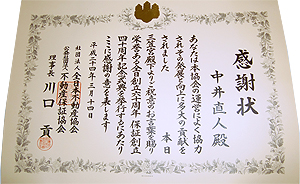 感謝状
中井直人殿
あなたは本協会の運営によく協力
されその発展向上に多大の貢献を
されました 本日
三笠宮殿下より祝意のお言葉を賜り
栄誉ある全日創立六十周年 保証創立
四十周年記念式典を挙行するにあたり
ここに感謝の意を表します
平成二十四年三月十四日
社団法人 全日本不動産協会
公益社団法人 不動産保証協会
理事長 川口貢